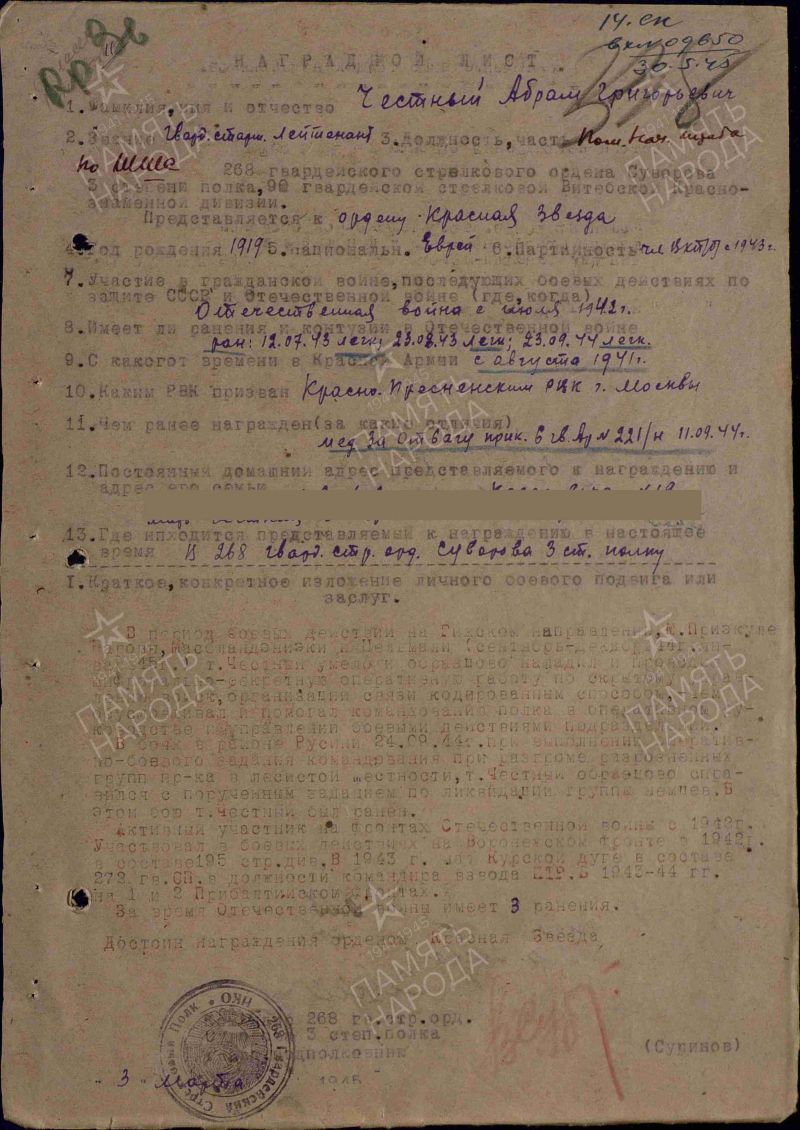 14.ск
вх№09650
30.5.45
НАГРАДНОЙ ЛИСТ
1.Фамилия,имя и отчество Честный Абрам Григорьевич
2.Звание Гвард.старш. лейтенант 3.Должность,часть Пом. Нач. штаба
по ШША 268 гвардейского стрелкового ордена Суворова
3 степени полка,90 гвардейской стрелковой Витебской Красно-
знаменной дивизии.
Представляется к ордену Красная Звезда
4.Год рождения 1919 5.Национальн. Еврей 6.Партийность чл ВКП(б) с 1943 г.
7.Участие в гражданской войне,последующих боевых действиях по
защите СССР и Отечественной войне (где,когда)
Отечественная война с июля 1942г.
8.Имеет ли ранения и контузии в Отечественной войне
ран: 12.07.43 легк; 23.08.43 легк; 23.09.44 легк.
9.С какогот времени в Красной Армии с августа 1941г.
10.Каким РВК призван Красно-Пресненским РВК г. Москвы
11.Чем ранее награжден(за какие отличия)
мед. За Отвагу прик. 6 гв.А № 221/н 11.09.44г.
12.Постоянный домашний адрес представляемого к награждению и
адрес его семьи
13.Где находится представляемый к награждению в настоящее
время В 268 гвард. стр. орд. Суворова 3 ст. полку
I.Краткое,конкретное изложение личного боевого подвига или
заслуг.
В период боевых действий на Рижском направлении, Приэкуле
т.Честный умело и образцово наладил и провод
секретную оперативную работу по скрытому
войск,организации связи кодированным способом, чем
и помогал командованию полка в оперативном ру-
ководстве и управлении боевыми действиями подразделений.
В боях в районе Русини 24.09.44г.при выполнении оператив-
но-боевого задания командования при разгроме разрозненных
групп пр-ка в лесистой местности,т.Честный образцово спра-
вился с порученным заданием по ликвидации группы немцев.В
этом бою т.Честный был ранен.
Активный участник на фронтах Отечественной войны с 1942г.
Участвовал в боевых действиях на Воронежском фронте в 1942г.
в составе 195 стр.див.В 1943 г. на Курской дуге в составе
272 гв.СП.в должности командира взвода ПТР.В 1943-44 гг.
на 1 и 2 Прибалтийском фронтах.
За время Отечественной войны имеет 3 ранения.
Достоин награждения орденом Красная Звезда
268 гв.стр.орд.
3 степ.полка
подполковник (Суринов)
3 марта 1945
268 Гвардейский Стрелковый Полк • НКО •
ПАМЯТЬ НАРОДА